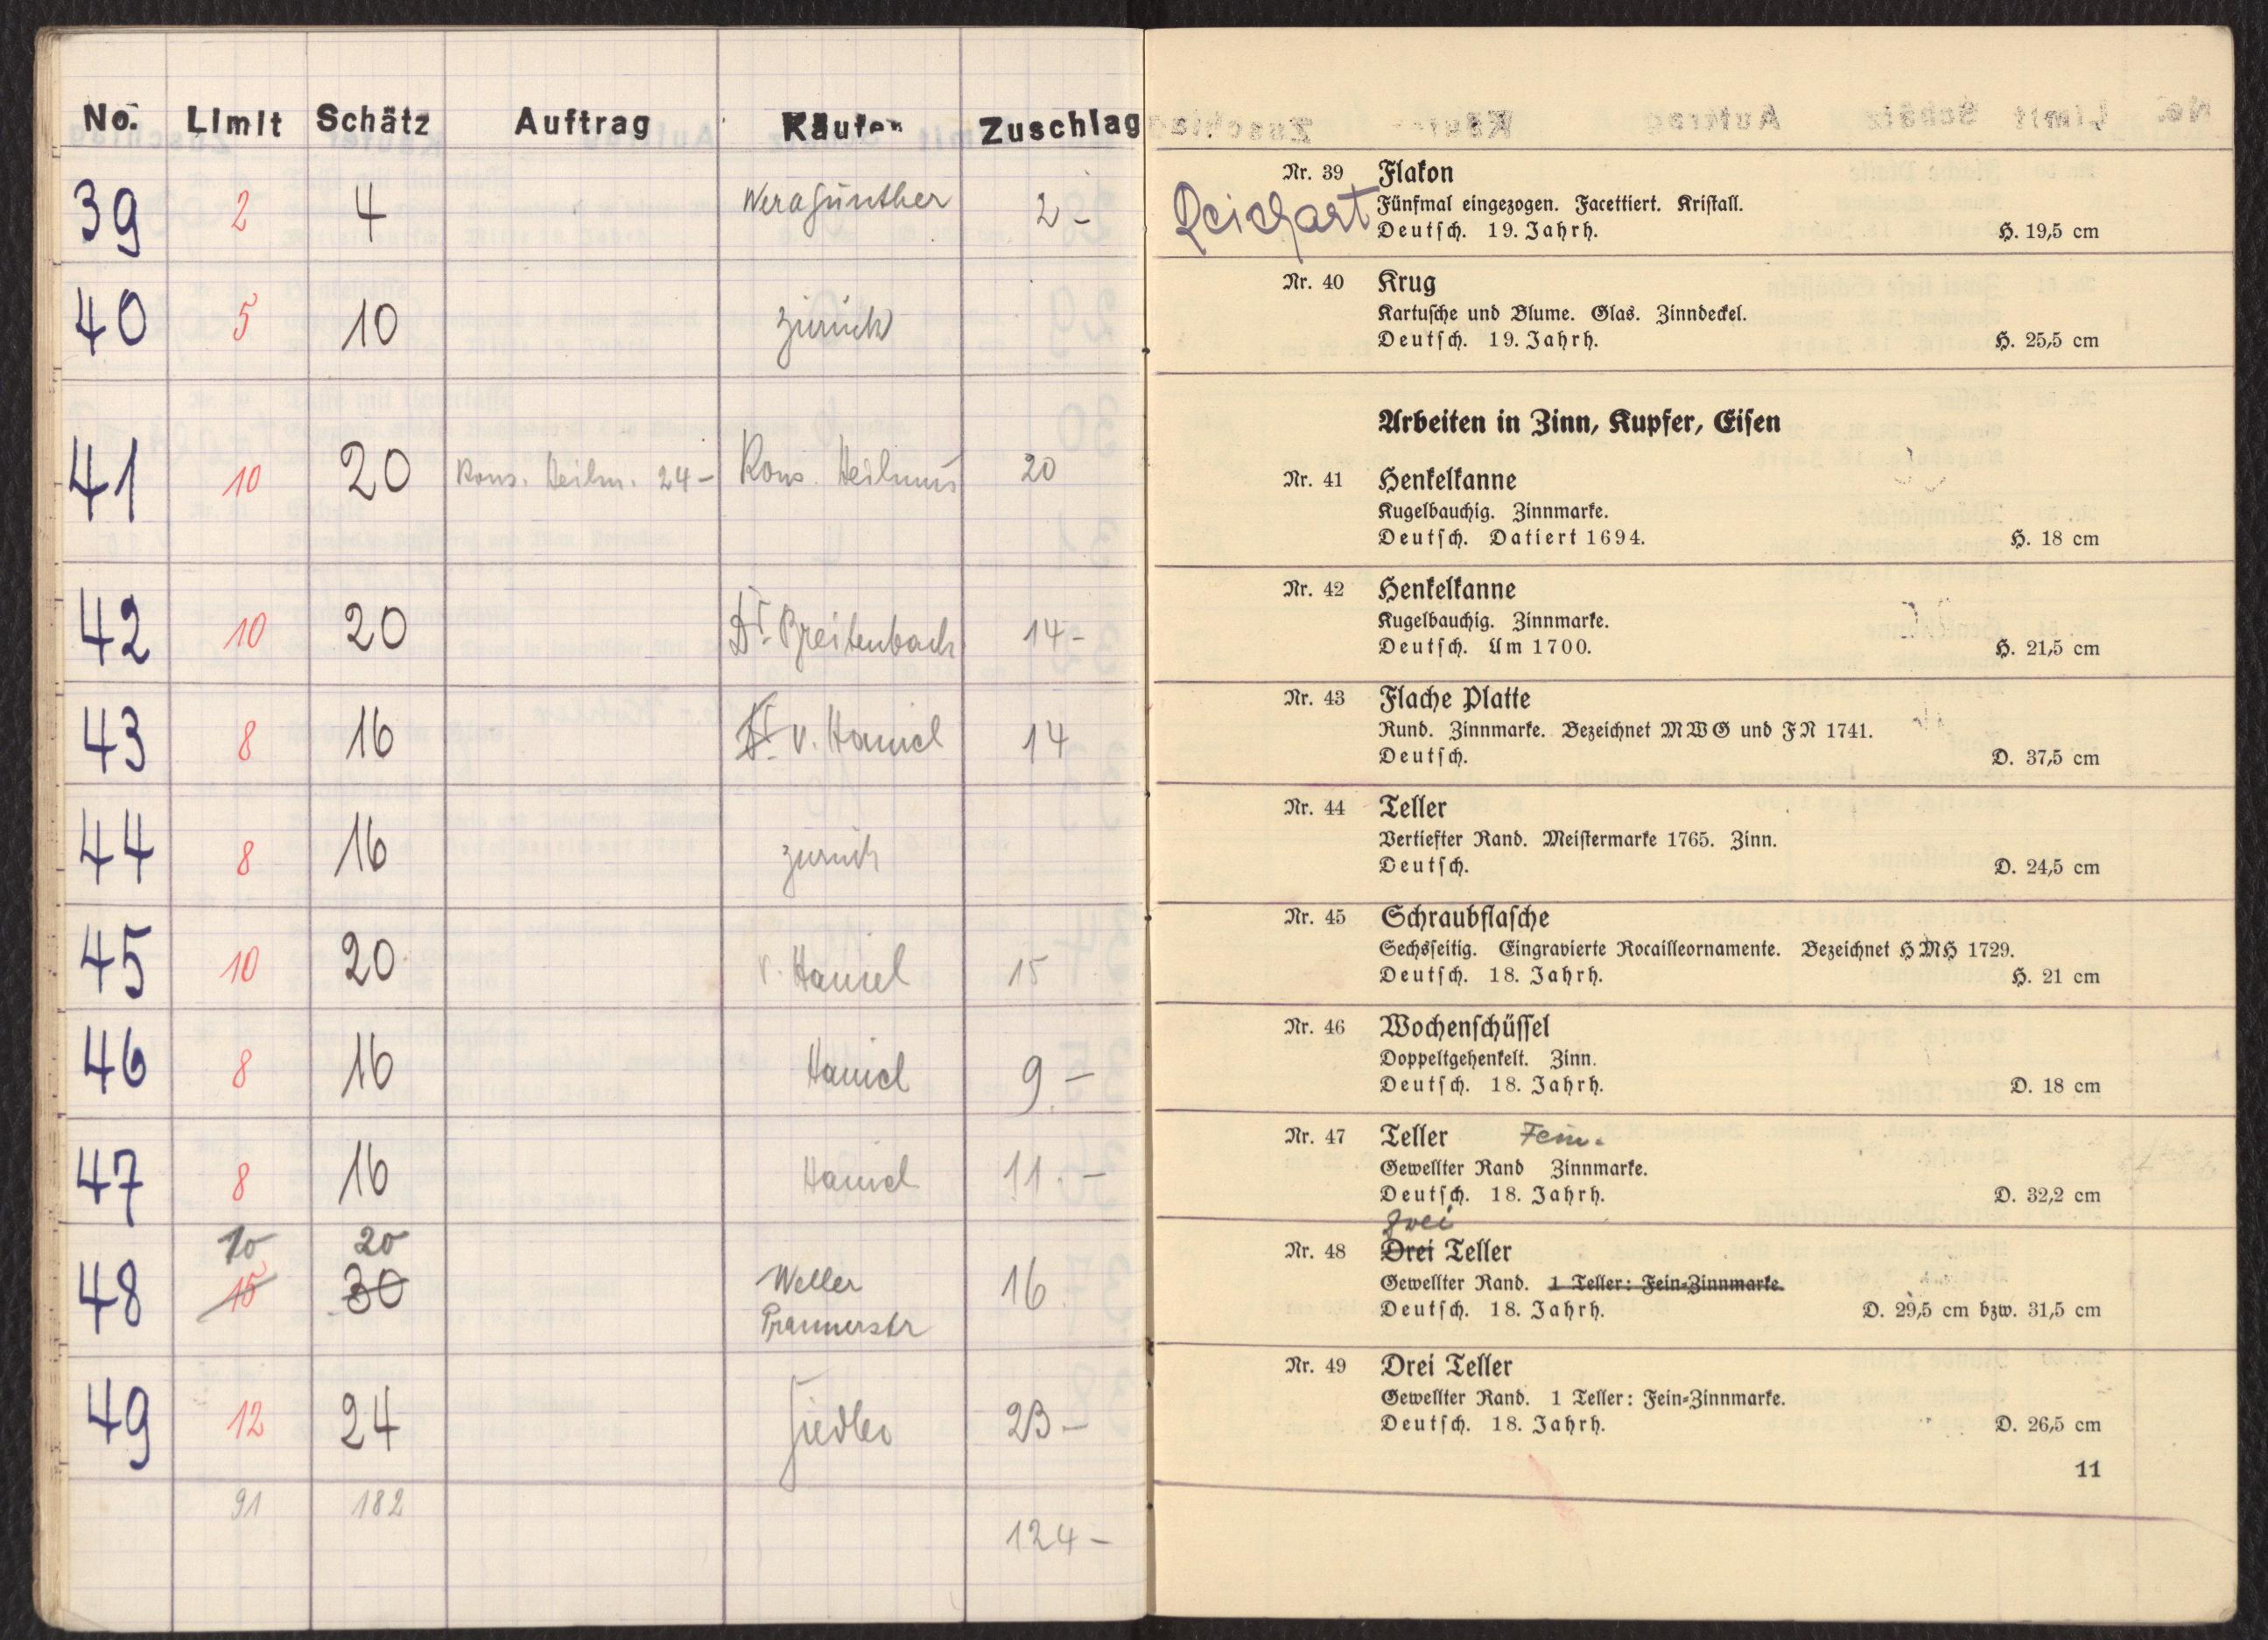 No. Limit Schätz Auftrag Käufer Zuschlag
39 2 4 Wera Günther 2-
40 5 10 zurück
41 10 20 Kons. Heilm. 24- Kons. Heilmus 20
42 10 20 Dr. Breitenbach 14-
43 8 16 Dr. v. Haniel 14
44 8 16 zurück
45 10 20 v. Haniel 15
46 8 16 Haniel 9.-
47 8 16 Haniel 11.-
10 20
48 15 30 Weller 16
Prannerstr
49 12 24 Fiedler 23-
91 182
124-
Nr. 39 Flakon
Reichart Fünfmal eingezogen. Facettiert. Kristall.
Deutsch. 19. Jahrh. H. 19,5 cm
Nr. 40 Krug
Kartusche und Blume. Glas. Zinndeckel.
Deutsch. 19. Jahrh. H. 25,5 cm
Arbeiten in Zinn, Kupfer, Eisen
Nr. 41 Henkelkanne
Kugelbauchig. Zinnmarke.
Deutsch. Datiert 1694. H. 18 cm
Nr. 42 Henkelkanne
Kugelbauchig. Zinnmarke.
Deutsch. Um 1700. H. 21,5 cm
Nr. 43 Flache Platte
Rund. Zinnmarke. Bezeichnet MWG und FN 1741.
Deutsch. D. 37,5 cm
Nr. 44 Teller
Vertiefter Rand. Meistermarke 1765. Zinn.
Deutsch. D. 24,5 cm
Nr. 45 Schraubflasche
Sechsseitig. Eingravierte Rocailleornamente. Bezeichnet HMH 1729.
Deutsch. 18. Jahrh. H. 21 cm
Nr. 46 Wochenschüssel
Doppeltgehenkelt. Zinn.
Deutsch. 18. Jahrh. D. 18 cm
Nr. 47 Teller Fein.
Gewellter Rand Zinnmarke.
Deutsch. 18. Jahrh. D. 32,2 cm
zwei
Nr. 48 Drei Teller
Gewellter Rand. 1 Teller: Fein-Zinnmarke.
Deutsch. 18. Jahrh. D. 29,5 cm bzw. 31,5 cm
Nr. 49 Drei Teller
Gewellter Rand. 1 Teller: Fein-Zinnmarke.
Deutsch. 18. Jahrh. D. 26,5 cm
11